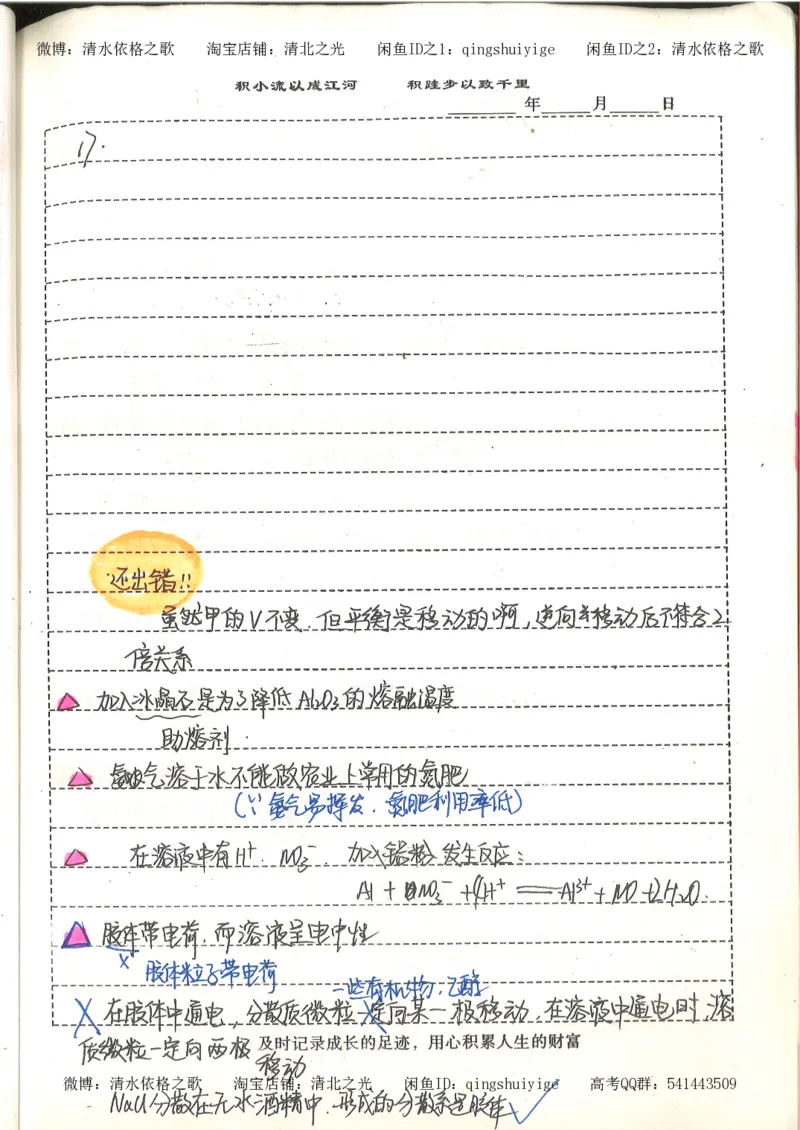 微博：清水依格之歌 淘宝店铺：清北之光 闲鱼ID之1：qingshuiyige 闲鱼ID之2：清水依格之歌
积小流以成江河 积跬步以致千里
年 月 日
17.
还出错!!
虽然甲的V不变，但平衡是移动的啊，逆向移动后不符合2
倍关系
加入冰晶石是为了降低Al₂O₃的熔融温度
助熔剂.
氨气溶于水不能做农业上常用的氮肥
(∵氨气易挥发，氮肥利用率低)
在溶液中有H⁺、NO₃⁻，加入铝粉发生反应：
Al + NO₃⁻ + 4H⁺ == Al³⁺ + NO + 2H₂O.
胶体带电荷，而溶液呈电中性
× 胶体粒子带电荷
一些有机物，乙醇
× 在胶体中通电，分散质微粒一定向某一极移动，在溶液中通电时，溶
质微粒一定向两极 及时记录成长的足迹，用心积累人生的财富
移动
微博：清水依格之歌 淘宝店铺：清北之光 闲鱼ID：qingshuiyige 高考QQ群：541443509
NaCl分散在无水酒精中，形成的分散系是胶体 ✓